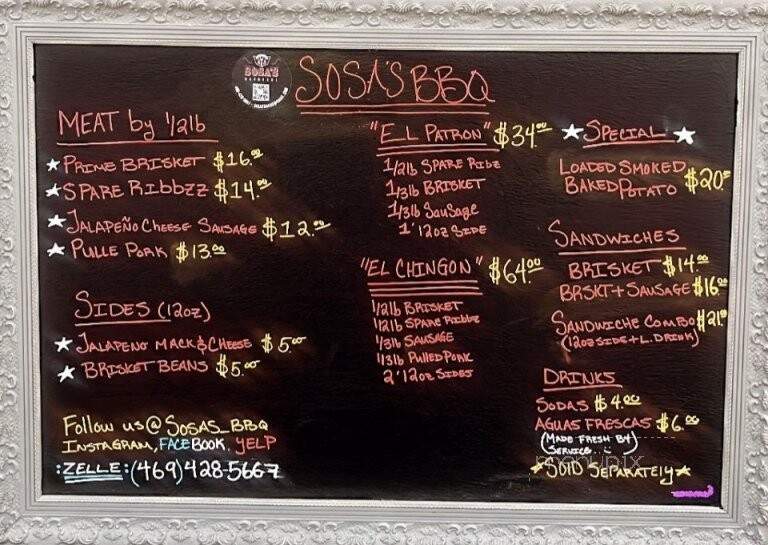 SOSA'S
SOSA'S BBQ
MEAT by 1/2lb
PRIME BRISKET $16.00
SPARE RIBBZZ $14.00
JALAPEÑO CHEESE SAUSAGE $12.00
PULLE PORK $13.00
SIDES (12oz)
JALAPENO MACK & CHEESE $5.00
BRISKET BEANS $5.00
Follow us @ SOSAS_BBQ
INSTAGRAM, FACEBOOK, YELP
:ZELLE: (469) 428-5667
"EL PATRON" $34.00
1/2lb SPARE RIBZ
1/3lb BRISKET
1/3lb SAUSAGE
1' 12oz SIDE
"EL CHINGON" $64.00
1/2lb BRISKET
1/2lb SPARE RIBBZ
1/3lb SAUSAGE
1/3lb PULLED PORK
2' 12oz SIDES
SPECIAL
LOADED SMOKED
BAKED POTATO $20.00
SANDWICHES
BRISKET $14.00
BRSKT + SAUSAGE $16.00
SANDWICHE COMBO $21.00
(12oz SIDE + L. DRINK)
DRINKS
SODAS $4.00
AGUAS FRESCAS $6.00
(MADE FRESH BY)
SERVICE...
*SOlD SEPARATELY*
menupix